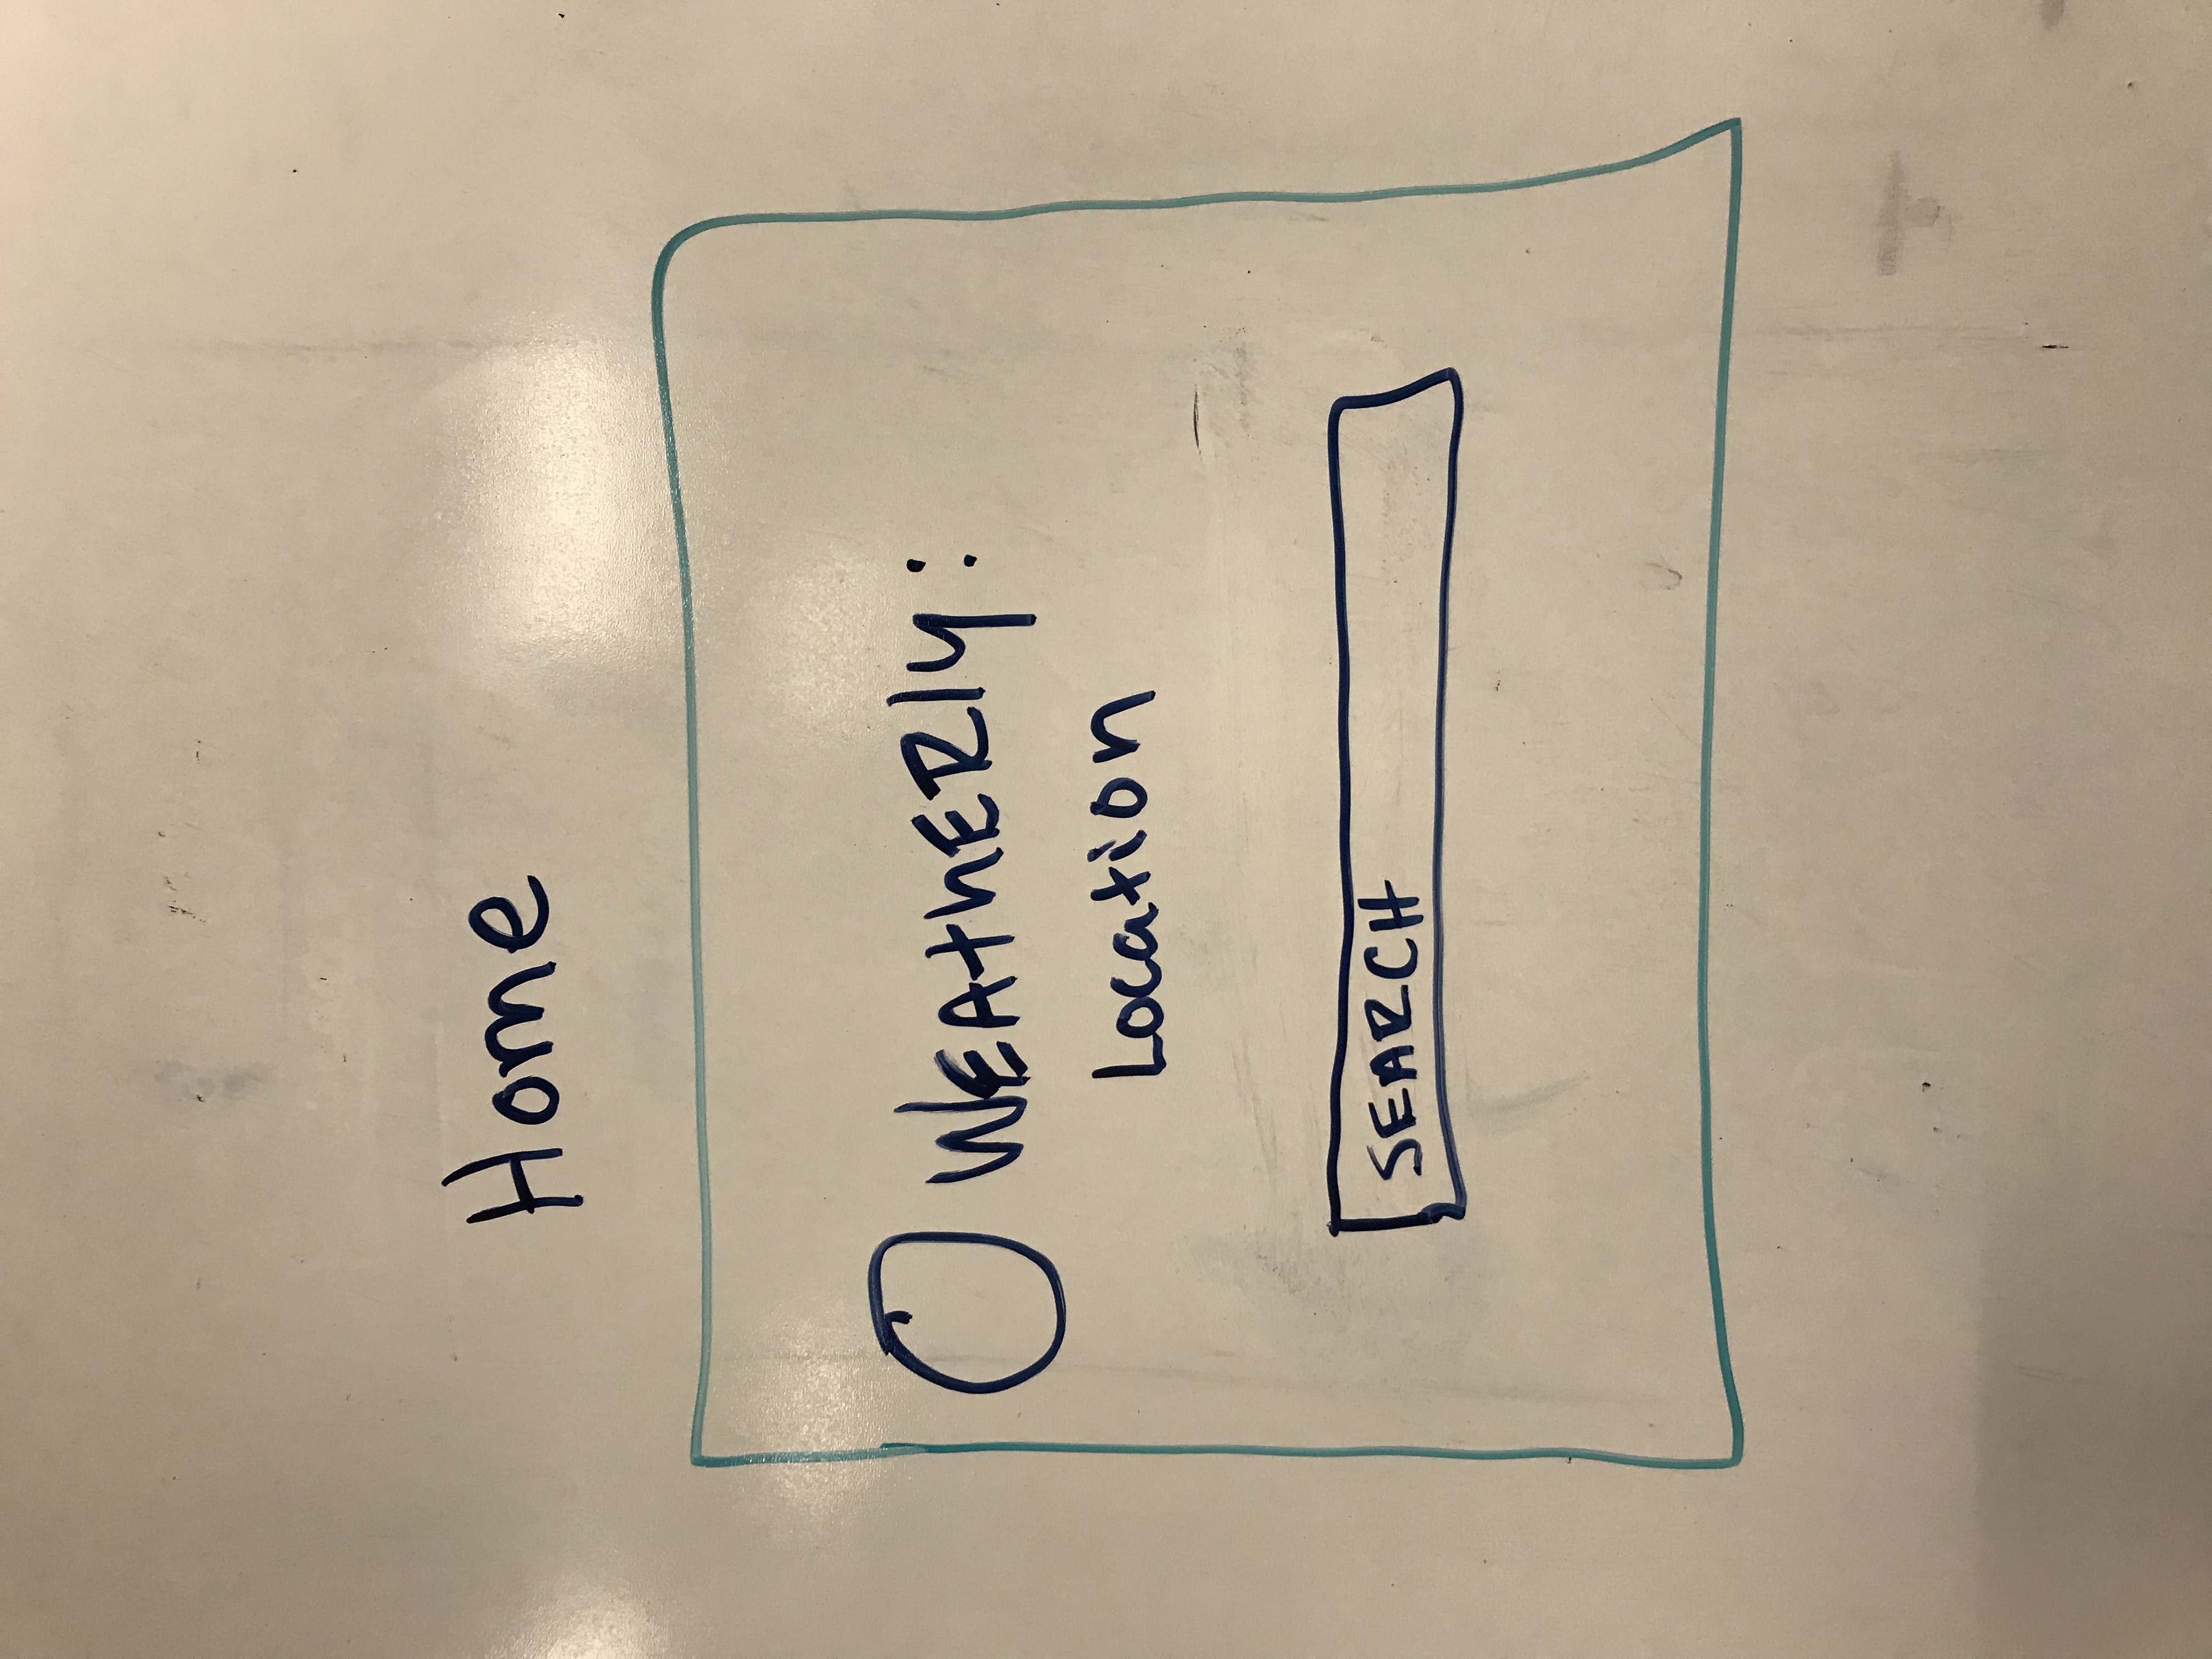 Home
WEAthERly:
Location
SEARCH